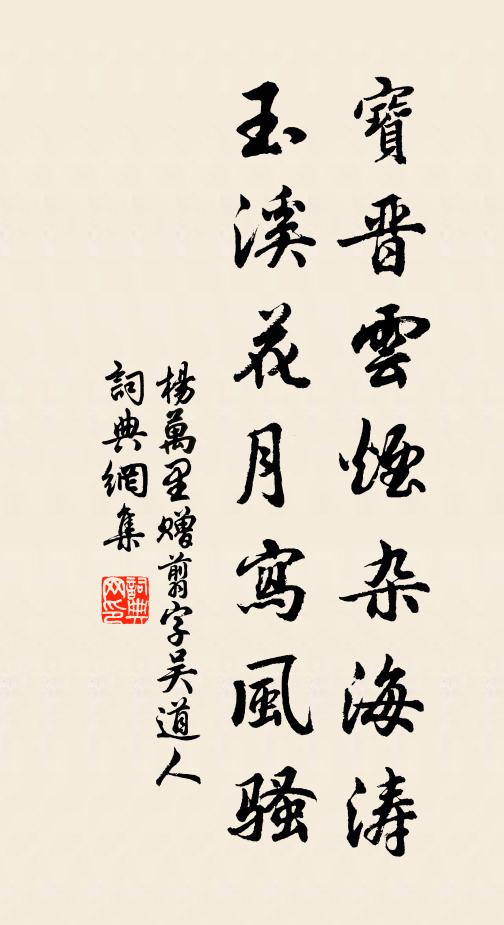 寶晋雲煙杂海涛
玉溪花月寫風騷
楊萬里赠剪字吴道人
詞典網集
詞典
网印